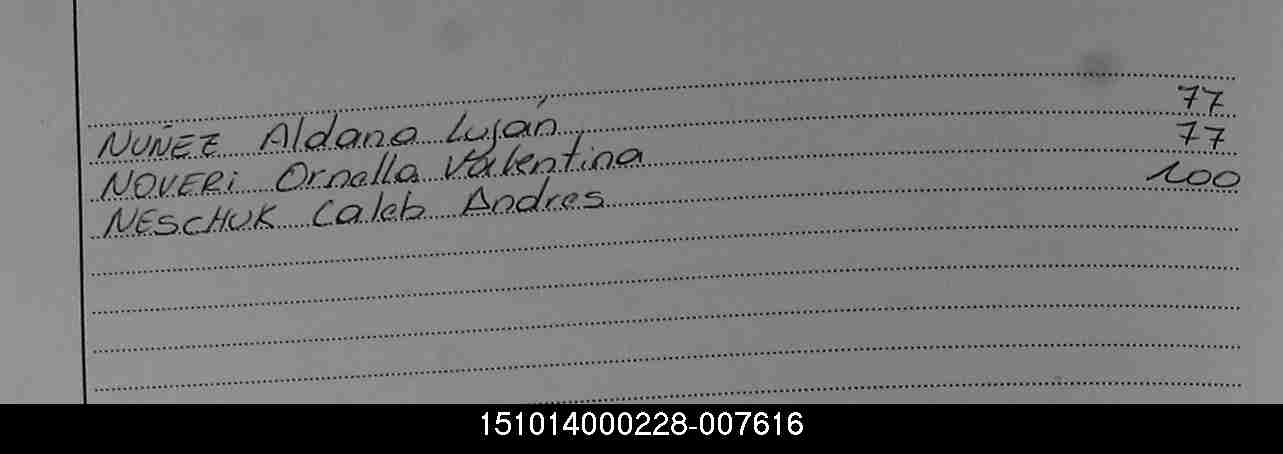 NUÑEZ Aldana Luján 77
NOVERi Ornella Valentina 77
NESCHUK Caleb Andres 100
151014000228-007616